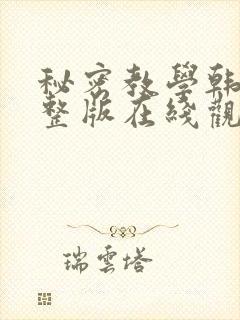 秘密教學韩
整版在綫觀
瑞雲塔